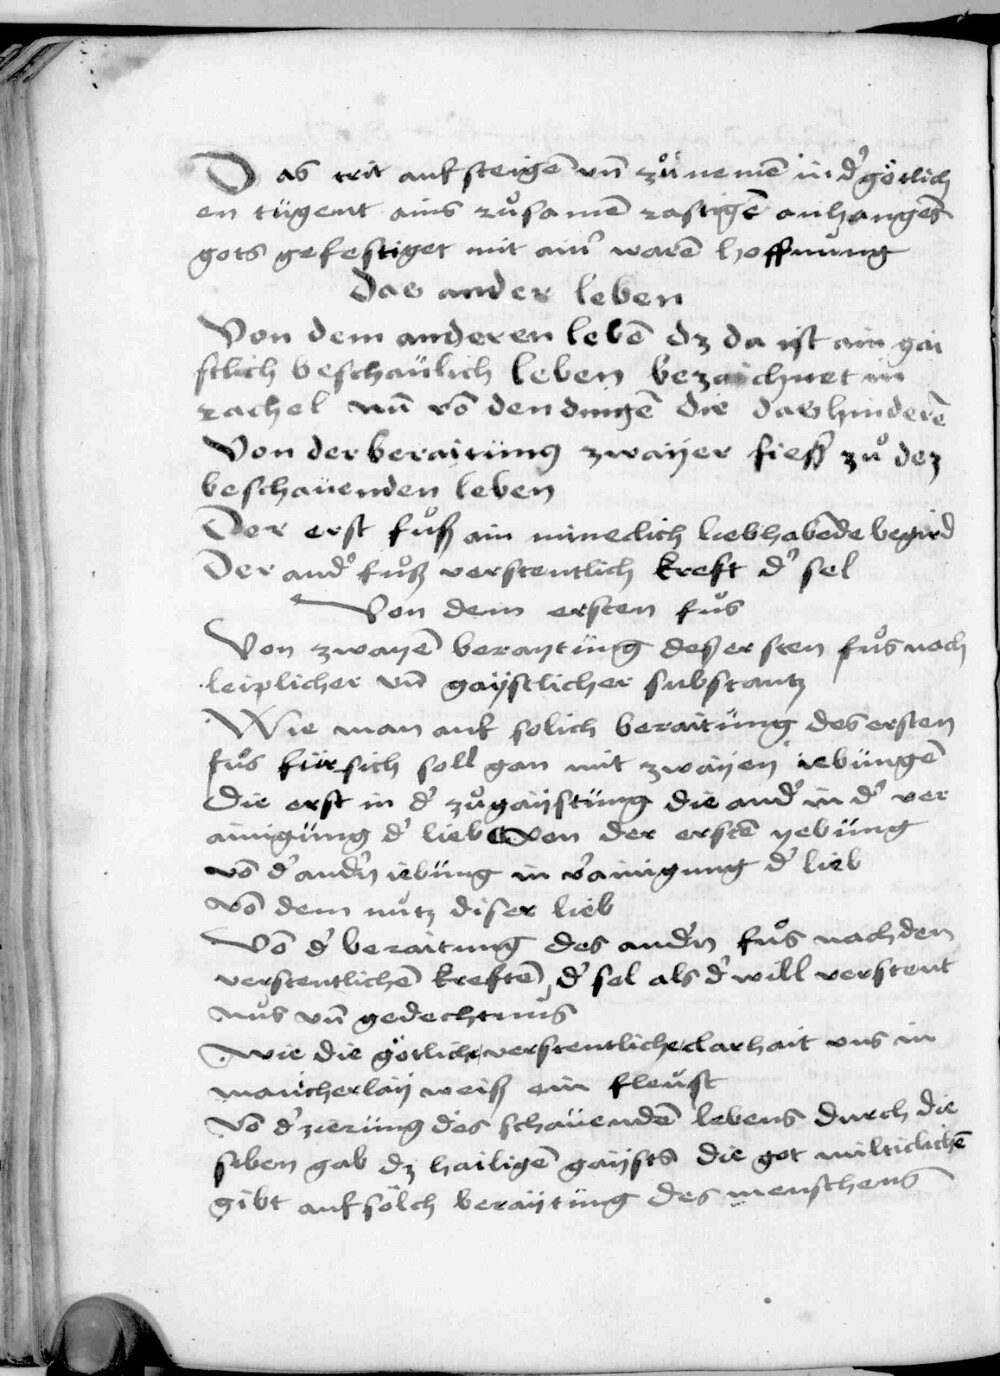 Das trit auf steigē vn̄ zů nemē in d' götlich
en tügent ains zůsamē rastigē anhangēs
gots gefestiget mit ain' warē hoffnung
Das ander leben
Von dem anderen lebē dz da ist ain gai
stlich beschaülich leben bezaichnet in
rachel vn̄ vō den dingē die das hinderē
Von der beraitüng zwaÿer fieß zů dez
beschaüenden leben
Der erst fůß ain mineclich liebhabēde begird
Der and' fůß verstentlich kreft d' sel
Von dem ersten fůs
Von zwaÿē beraÿtüng deß ersten fůs noch
leiplicher vn̄ gaÿstlicher substantz
Wie man auf solich beraitüng des ersten
fůs für sich soll gan mit zwaÿen iebüngē
Die erst in d' zůgaÿstüng die and' in d' ver
ainigüng d' lieb Von der erstē yebüng
vō d' and'n iebüng in v'ainigung d' lieb
vō dem nutz diser lieb
Vō d' beraitung des and'n fůs nach den
verstentlichē kreftē d' sel als d' will verstent
nus vn̄ gedechtnus
Wie die götliche verstentliche clarhait vns in
mancherlaÿ weiß ein fleust
Vō d' zierüng des schaüendē lebens durch die
siben gab dz hailigē gaÿsts die got milticlichē
gibt auf sölch beraÿtüng des menschens